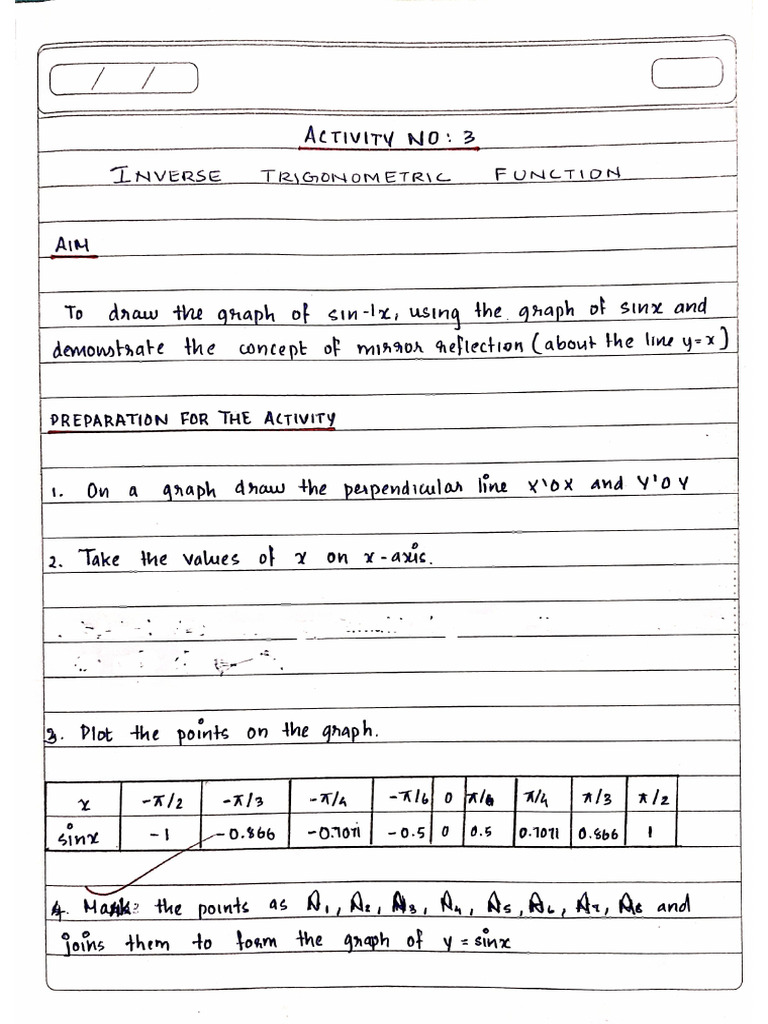 / /
ACTIVITY NO: 3
INVERSE TRIGONOMETRIC FUNCTION
AIM
To draw the graph of sin-1x, using the graph of sinx and
demonstrate the concept of mirror reflection (about the line y=x)
PREPARATION FOR THE ACTIVITY
1. On a graph draw the perpendicular line X'OX and Y'OY
2. Take the values of x on x-axis.
3. Plot the points on the graph.
x -π/2 -π/3 -π/4 -π/6 0 π/6 π/4 π/3 π/2
sinx -1 -0.866 -0.7071 -0.5 0 0.5 0.7071 0.866 1
4. Mark the points as A1, A2, A3, A4, A5, A6, A7, A8 and
joins them to form the graph of y = sinx